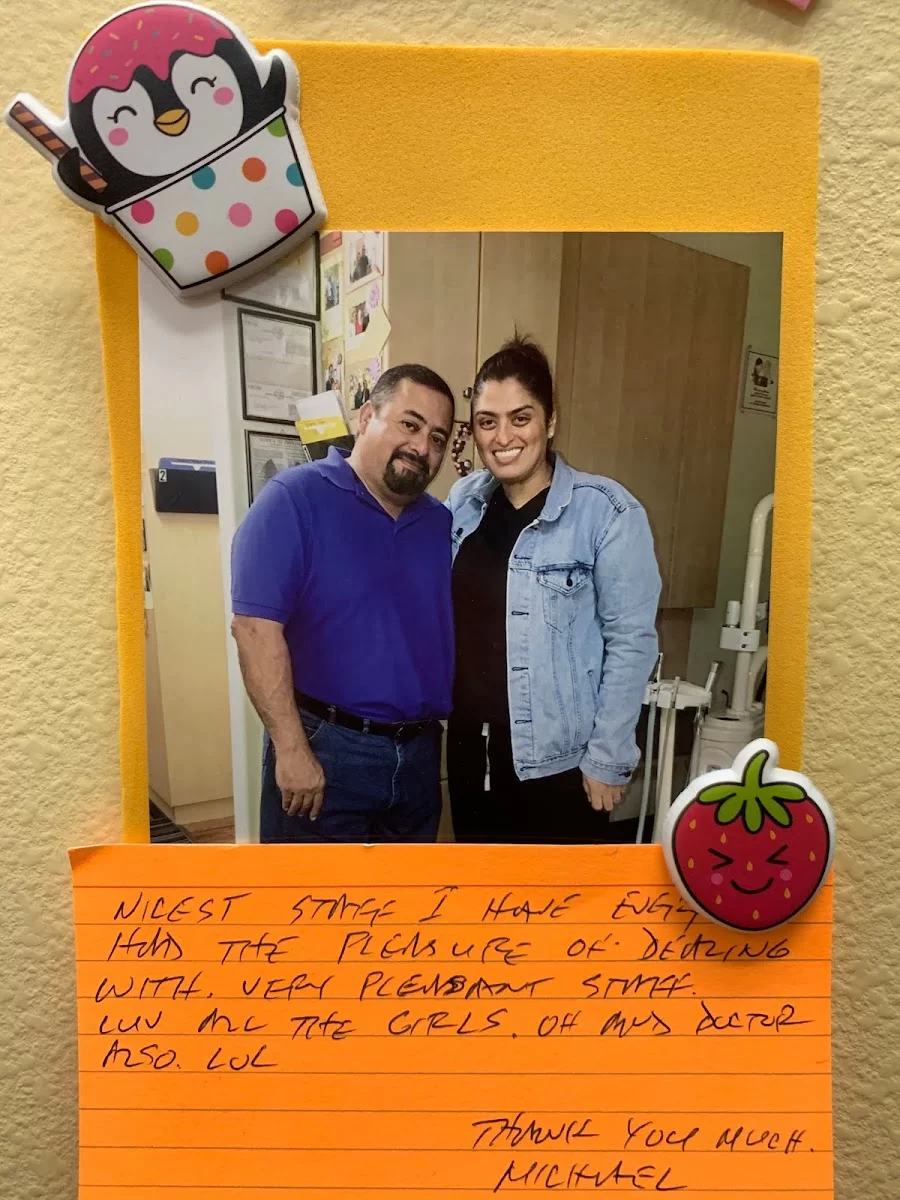 2
NICEST STAFF I HAVE EVER
HAD THE PLEASURE OF DEALING
WITH. VERY PLEASANT STAFF.
LUV ALL THE GIRLS. OH AND DOCTOR
ALSO. LOL
THANK YOU MUCH.
MICHAEL